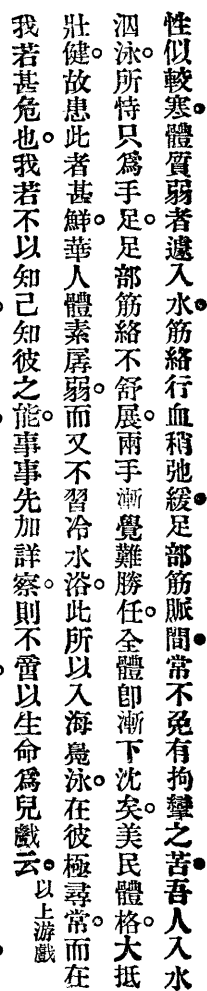 性似較寒。體質弱者遽入水。筋絡行血稍弛緩。足部筋脈間常不免有拘攣之苦。吾人入水
泅泳。所恃只爲手足。足部筋絡不舒展。兩手漸覺難勝任。全體卽漸下沈矣。美民體格。大抵
壯健。故患此者甚鮮。華人體素孱弱。而又不習冷水浴。此所以入海鳧泳。在彼極尋常。而在
我若甚危也。我若不以知己知彼之能。事事先加詳察。則不啻以生命爲兒戲云。以上游戲